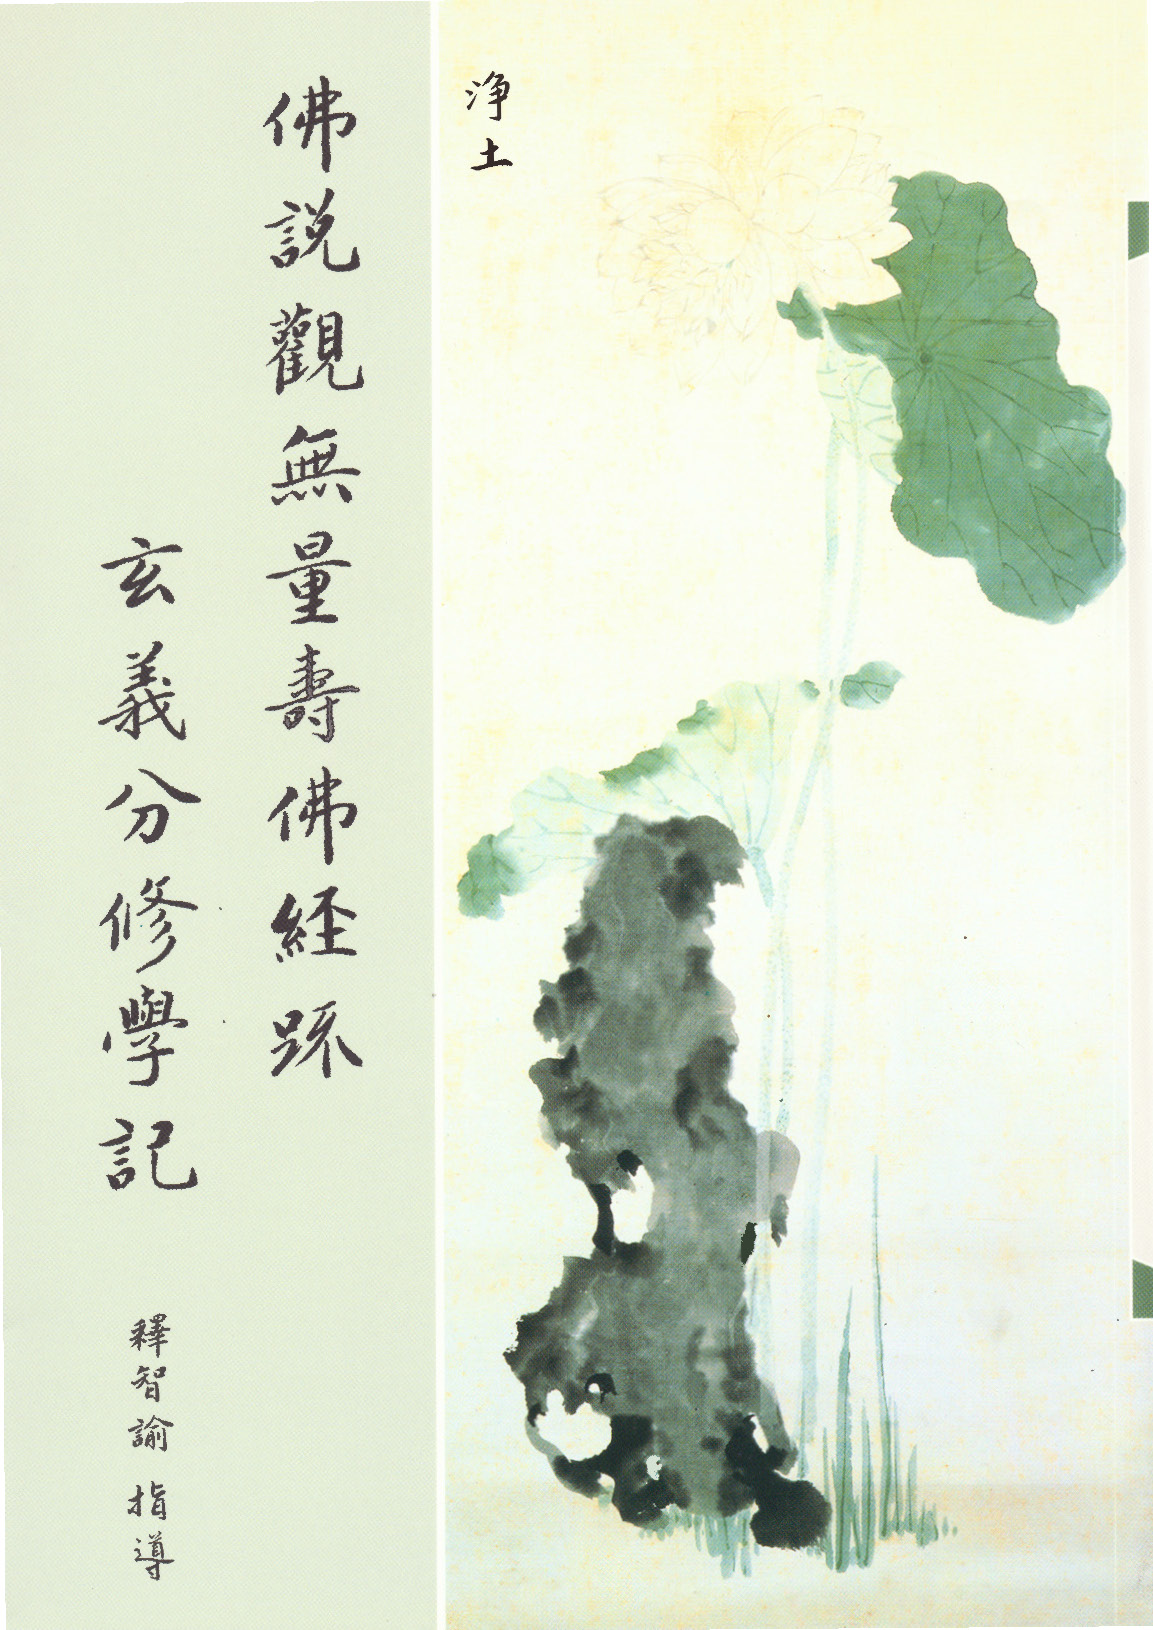 淨土
佛說觀無量壽佛經疏
玄義分修學記
釋智諭 指導